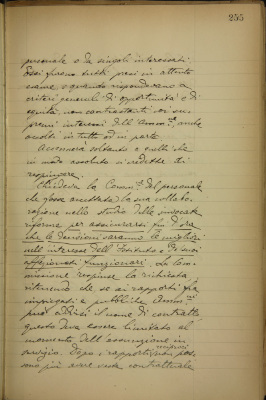 255
personale o da singoli interessati.
Essi furono tutti presi in attento
esame, e quando rispondevano a
criteri generali di opportunità e di
equità, non contrastanti coi su-
premi interessi dell'Amm.ne, anche
accolti in tutto od in parte.
Accennerà soltanto a quelli che
in modo assoluto si credette di
respingere.
Chiedeva la Comm.ne del personale
che fosse accettata la sua collabo-
razione nello studio delle invocate
riforme per assicurarsi fin d'ora
che le decisioni saranno le migliori
nell'interesse dell'Istituto e de' suoi
affezionati funzionari. La Com-
missione respinse la richiesta
ritenendo che se ai rapporti fra
impiegati e pubbliche Amm.ni
può addirsi il nome di contratto
questo deve essere limitato al
momento dell'assunzione in
servizio. Dopo, i rapporti reciproci non pos-
sono più avere veste contrattuale